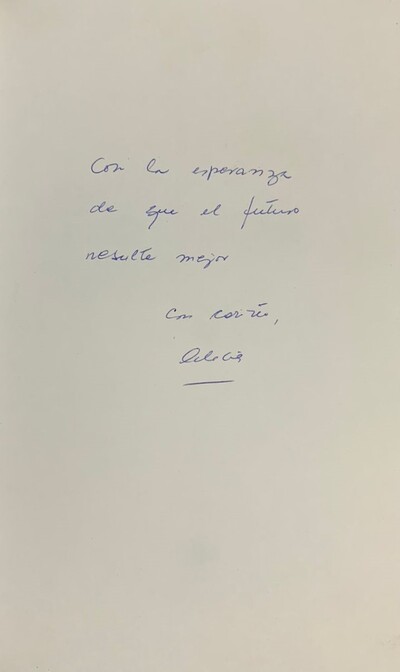 Con la esperanza
de que el futuro
resulte mejor
Con cariño,